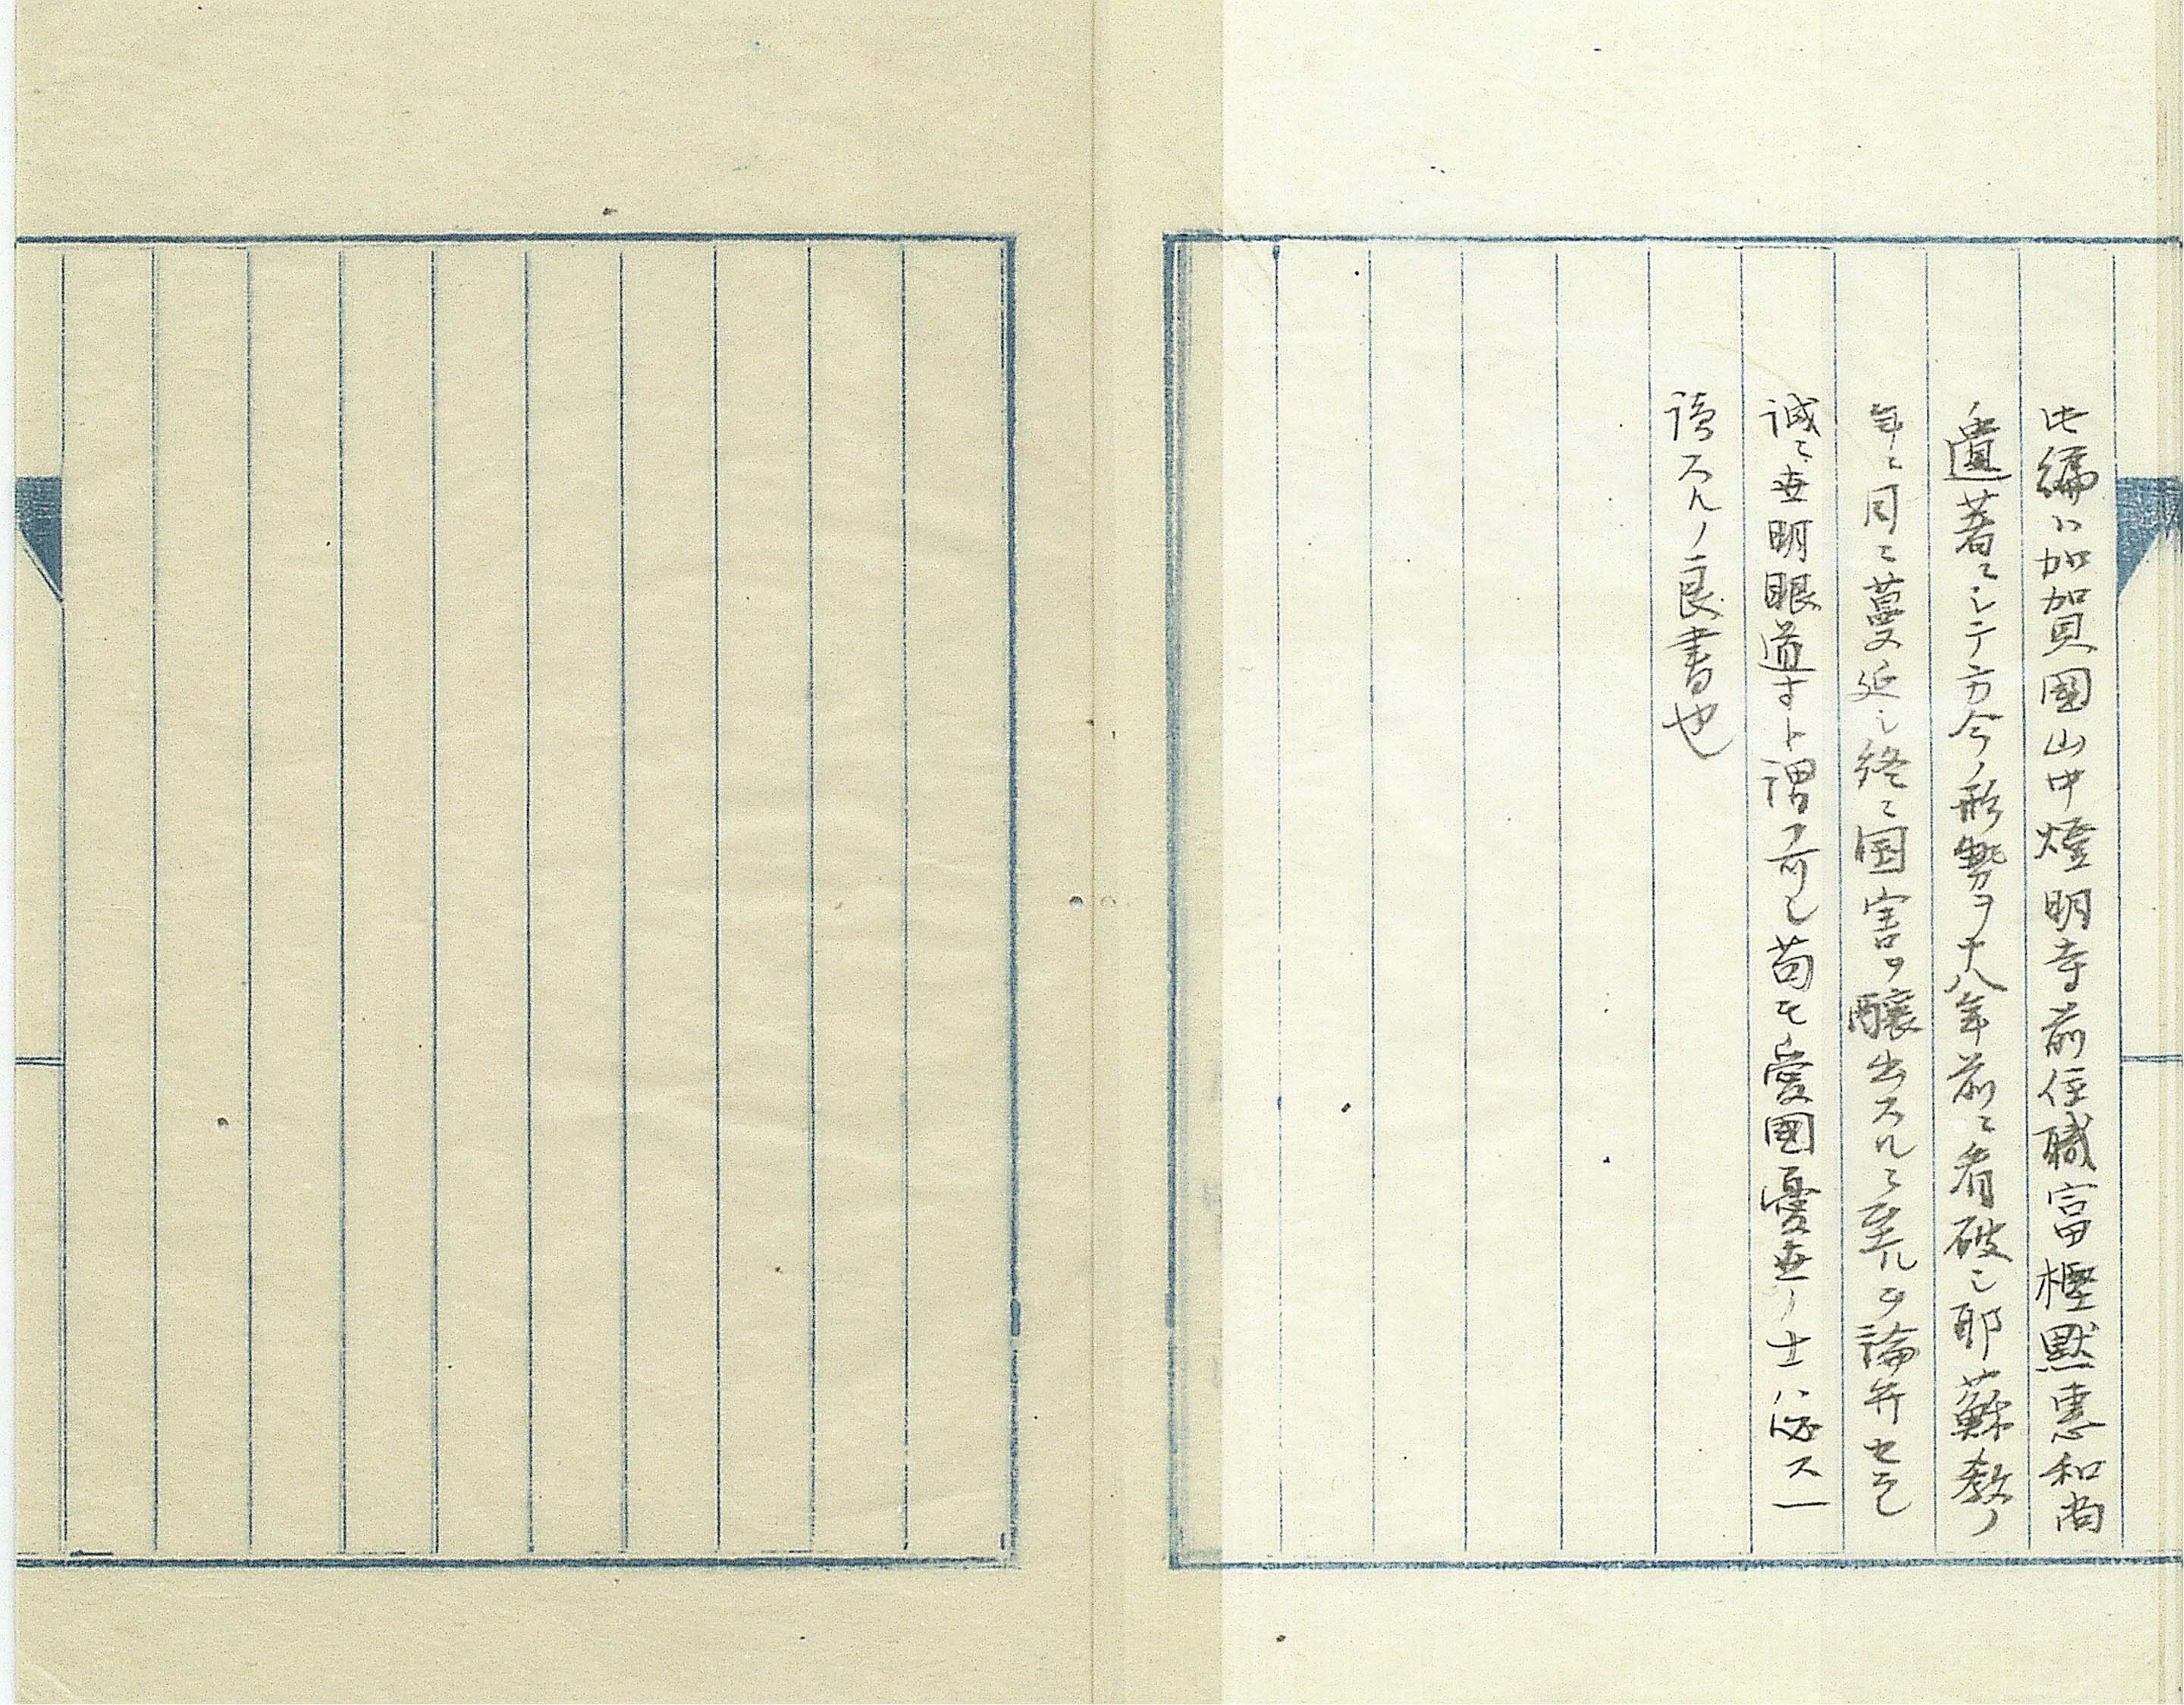 此編ハ加賀國山中燈明寺前住職富樫默惠和尚
ノ遺著ニシテ方今ノ形勢ヲ十八年前ニ看破シ耶蘇教ノ
年ニ月ニ蔓延シ終ニ国害ヲ醸出スルニ至ルヲ論弁セシ
誠ニ世明眼導ナト謂フ可シ苟モ愛國憂世ノ士ハ必ス一
讀スルノ良書也